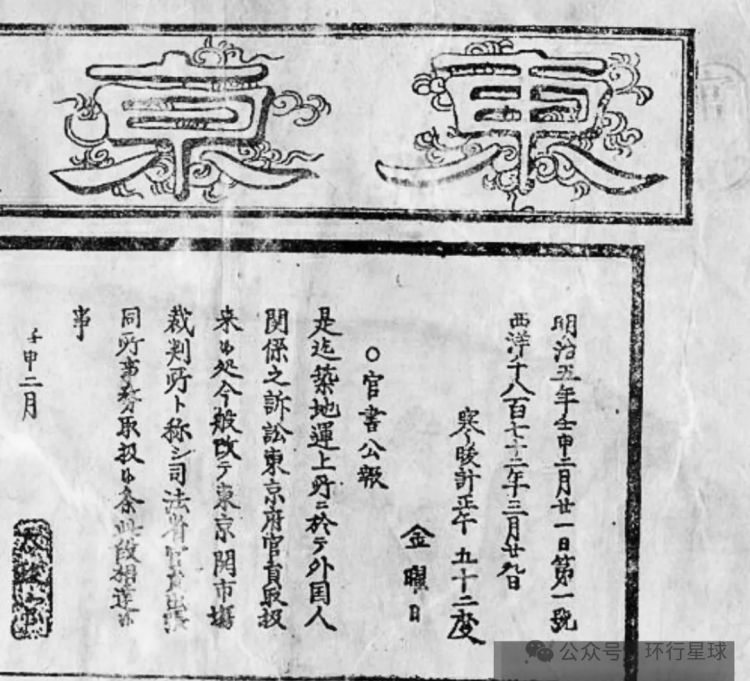 東亰
明治五年壬申二月廿一日第一號
西洋千八百七十二年三月廿九日
寒暖計正午 五十二度
金曜日
○官書公報
是迄築地運上所ニ於テ外国人
関係之訴訟東京府官員取扱
来候処今般改テ東京開市場
裁判所ト称シ司法省官員出張
同所事務取扱候条此段相達候
事
壬申二月
太政官
公众号 环行星球